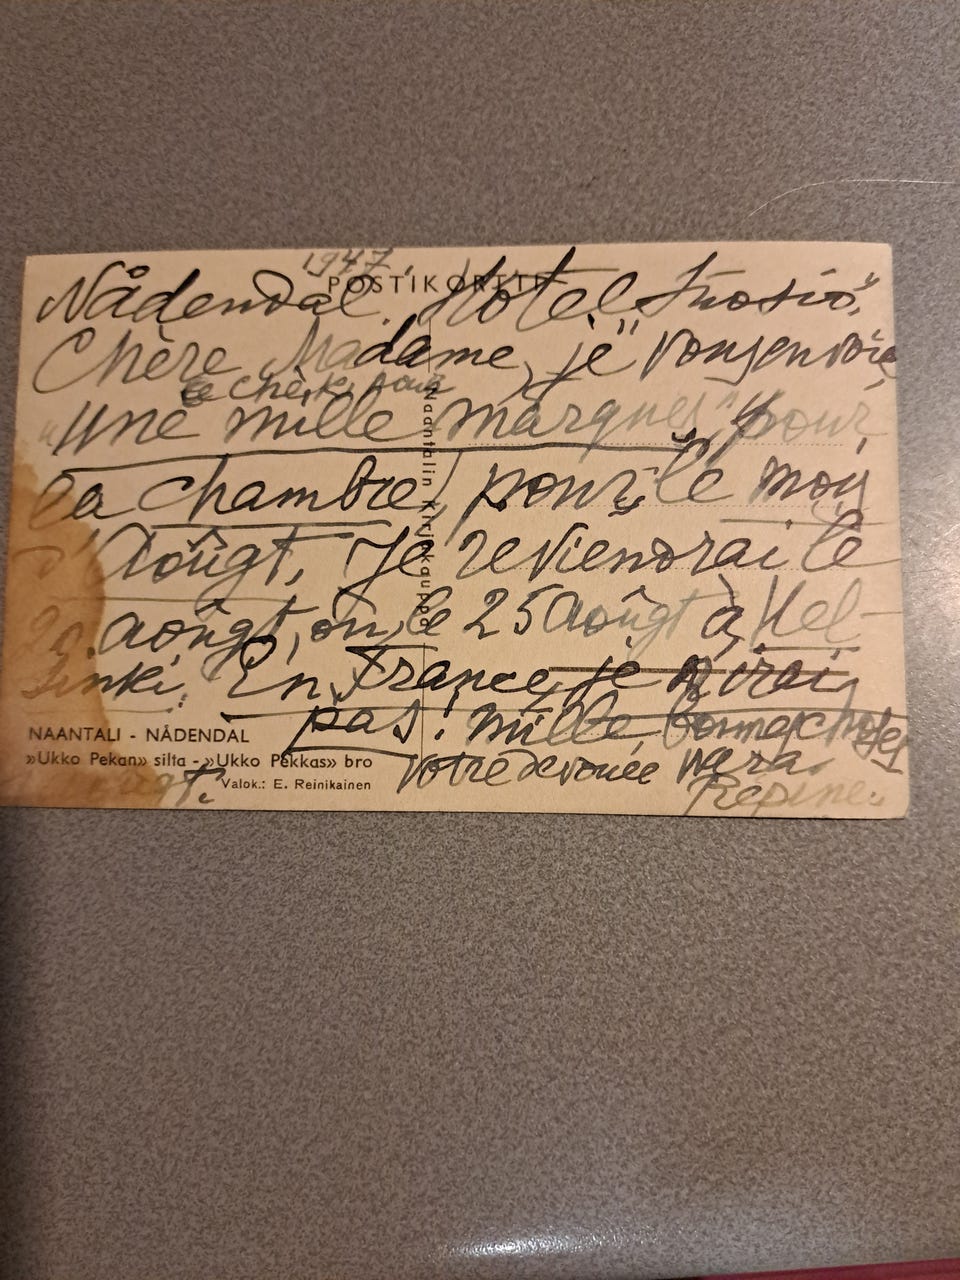 1947.
POSTIKORTTI
Nådendal. Hotel
Chère Madame, je vousenvoie
le chèk pour
"une mille marques" pour
la chambre, pour le moi
d'Aoûgt, Je reviendrai le
aoûgt, ou le 25 aoûgt à Hel-
sinki. En France je n'irai
pas! mille bonnes choses
votre devouée Wara
Repine.
Naantalin Kirjakauppa
NAANTALI - NÅDENDAL
»Ukko Pekan» silta - »Ukko Pekkas» bro
Valok.: E. Reinikainen